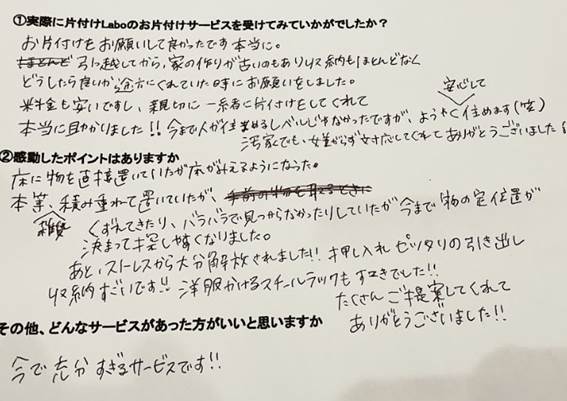 ①実際に片付けLaboのお片付けサービスを受けてみていかがでしたか？
お片付けをお願いして良かったです本当に。
引っ越してから、家の作りが古いのもあり収納もほとんどなく
どうしたら良いか途方にくれていた時にお願いをしました。
料金も安いですし、親切に一緒に片付けをしてくれて 安心して
本当に助かりました!! 今まで人が住めるレベルじゃなかったですが、ようやく住めます(笑)
汚家でも、女兼がらず対応してくれてありがとうございました!
②感動したポイントはありますか
床に物を直接置いていたが床が見えるようになった。
本等、積み重ねて置いていたが、手前の物を取るときに
雑貨 くずれてきたり、バラバラで見つからなかったりしていたが今まで物の定位置が
決まって探しやすくなりました。
あと、ストレスから大分解放されました!! 押し入れピッタリの引き出し
収納すごいです!! 洋服かけるスチールラックもすてきでした!!
たくさんご提案してくれて
ありがとうございました!!
その他、どんなサービスがあった方がいいと思いますか
今で充分すぎるサービスです!!